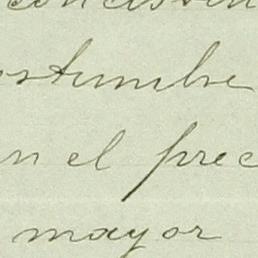 ostumbre
en el prec
mayor